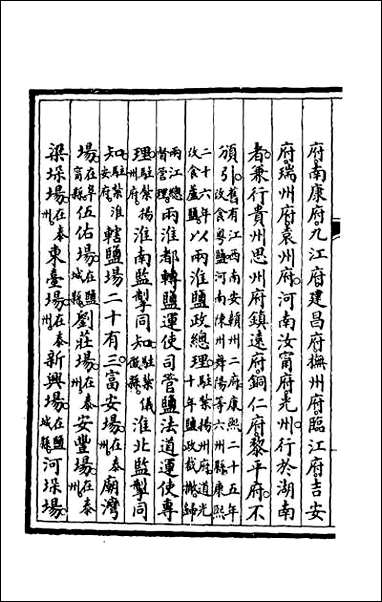 府南康府九江府建昌府撫州府臨江府吉安
府瑞州府袁州府河南汝甯府光州行於湖南
者兼行貴州思州府鎮遠府銅仁府黎平府不
頒引舊有江西南安贛州二府康熙二十五年改食粵鹽河南陳州舞陽等六州縣康熙
二十六年改食蘆鹽以兩淮鹽政總理駐紮揚州府道光十年鹽政裁撤歸
兩江總督管理兩淮都轉鹽運使司管鹽法道運使專
理駐紮揚州府淮南監掣同知駐紮儀徵縣淮北監掣同
知駐紮淮安府轄鹽場二十有三富安場在泰州廟灣
場在阜甯縣伍佑場在鹽城縣劉莊場在泰州安豐場在泰州
梁垛場在泰州東臺場在泰州新興場在鹽城縣河垛場